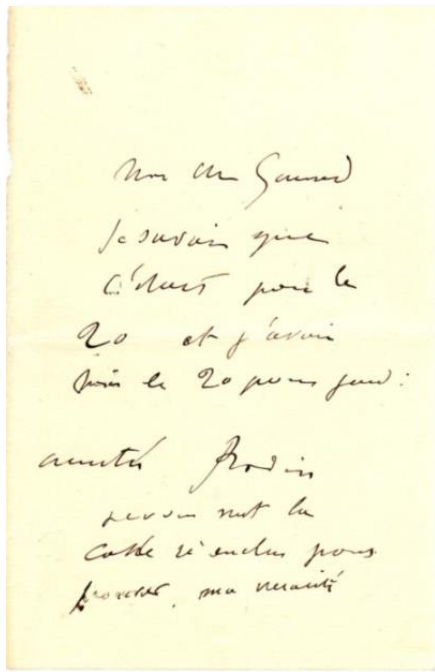 Mon cher
Je savais que
c'était pour le
20 et j'avais
pris le 20 pour jeudi:
amitié Rodin
je vous met la
carte ci enclus pour
prouver ma véracité